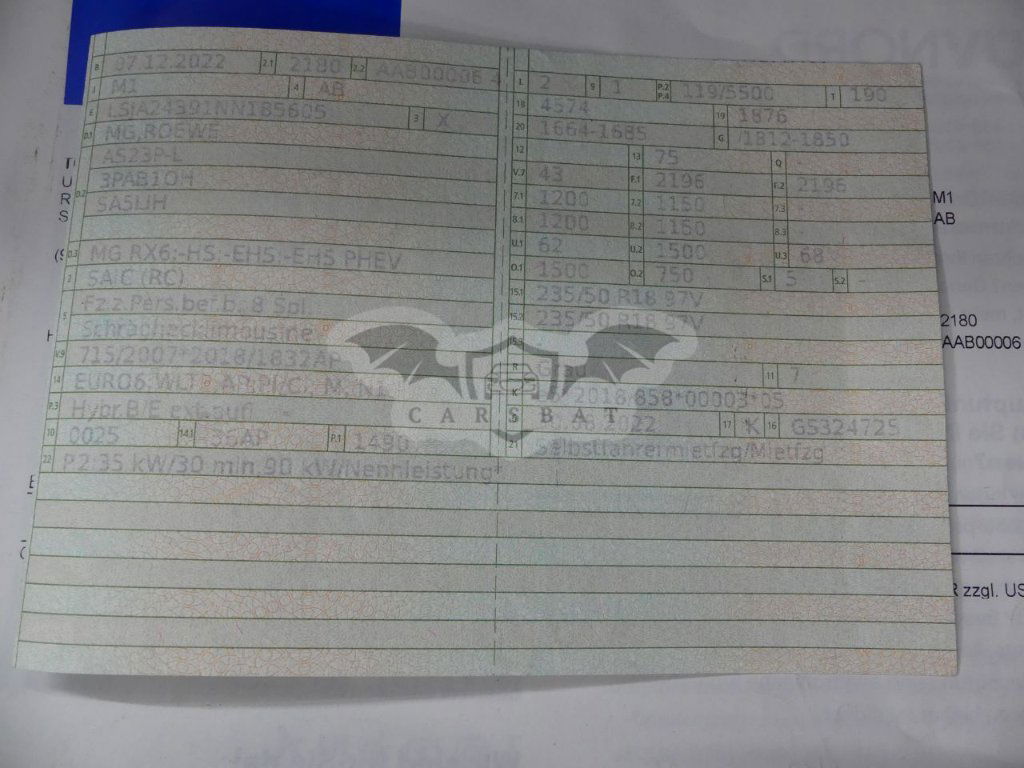 B 07.12.2022 2.1 2180 2.2 AAB00006 4
J M1 4 AB
E LSJA24391NN185605 3 X
D.1 MG,ROEWE
AS23P-L
D.2 3PAB1OH
SA5LIH
D.3 MG RX6;-HS;-EHS;-EHS PHEV
2 SAIC (RC)
5 Fz.z.Pers.bef.b. 8 Spl.
Schräghecklimousine
V.9 715/2007*2018/1832AP
14 EURO6;WLTP
P.3 Hybr.B/E
10 0025 14.1 36AP P.1 1490
22 P2:35 kW/30 min,90 kW/Nennleistung*
L 2 9 1 P.2 P.4 119/5500 T 190
18 4574 19 1876
20 1664-1685 G 1812-1850
12 13 75 Q -
V.7 43 F.1 2196 F.2 2196
7.1 1200 7.2 1150 7.3 -
8.1 1200 8.2 1150 8.3 -
U.1 62 U.2 1500 U.3 68
O.1 1500 O.2 750 S.1 5 S.2 -
15.1 235/50 R18 97V
15.2 235/50 R18 97V
15.3
R Grau 11 7
K 2018/858*00003*05
2022 17 K 16 GS324725
21 Selbstfahrermietfzg/Mietfzg
CARSBAT
M1
AB
2180
AAB00006
zzgl. US